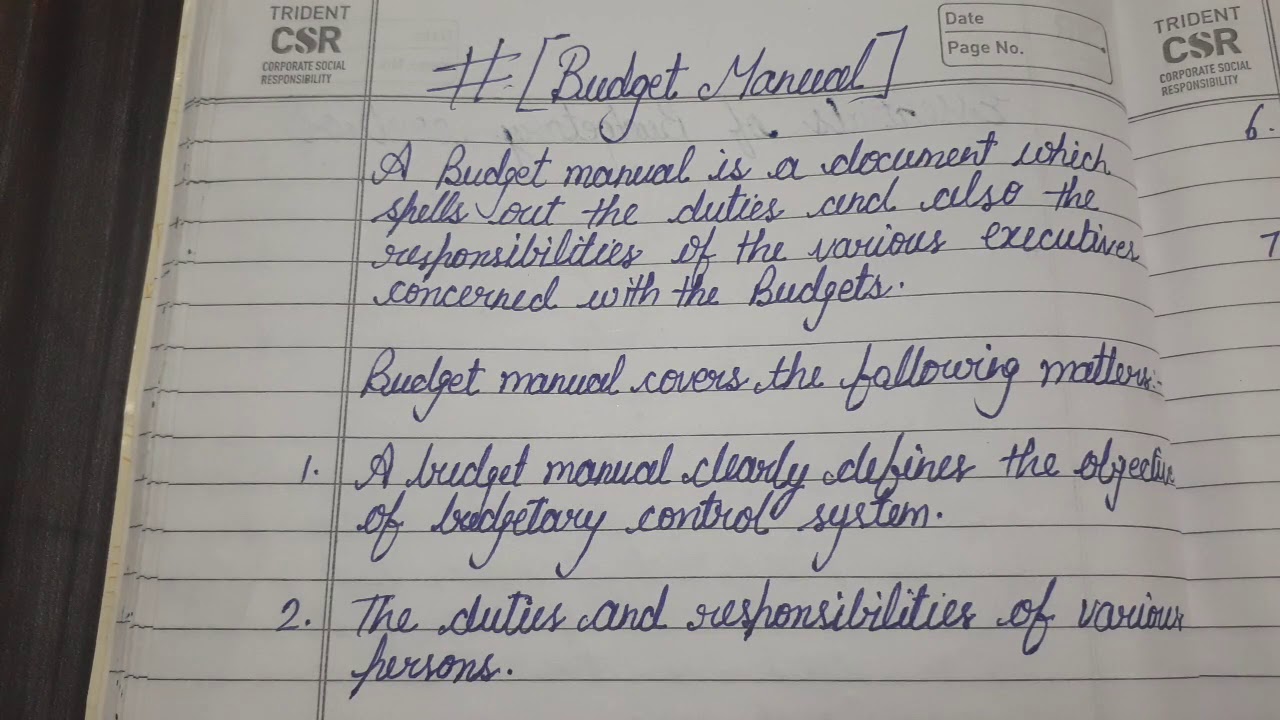 TRIDENT
CSR
CORPORATE SOCIAL
RESPONSIBILITY
Date
Page No.
#[Budget Manual]
A Budget manual is a document which
spells out the duties and also the
responsibilities of the various executives
concerned with the Budgets.
Budget manual covers the following matters:-
1. A budget manual clearly defines the objective
of budgetary control system.
2. The duties and responsibilities of various
persons.
TRIDENT
CSR
CORPORATE SOCIAL
RESPONSIBILITY
6.
7